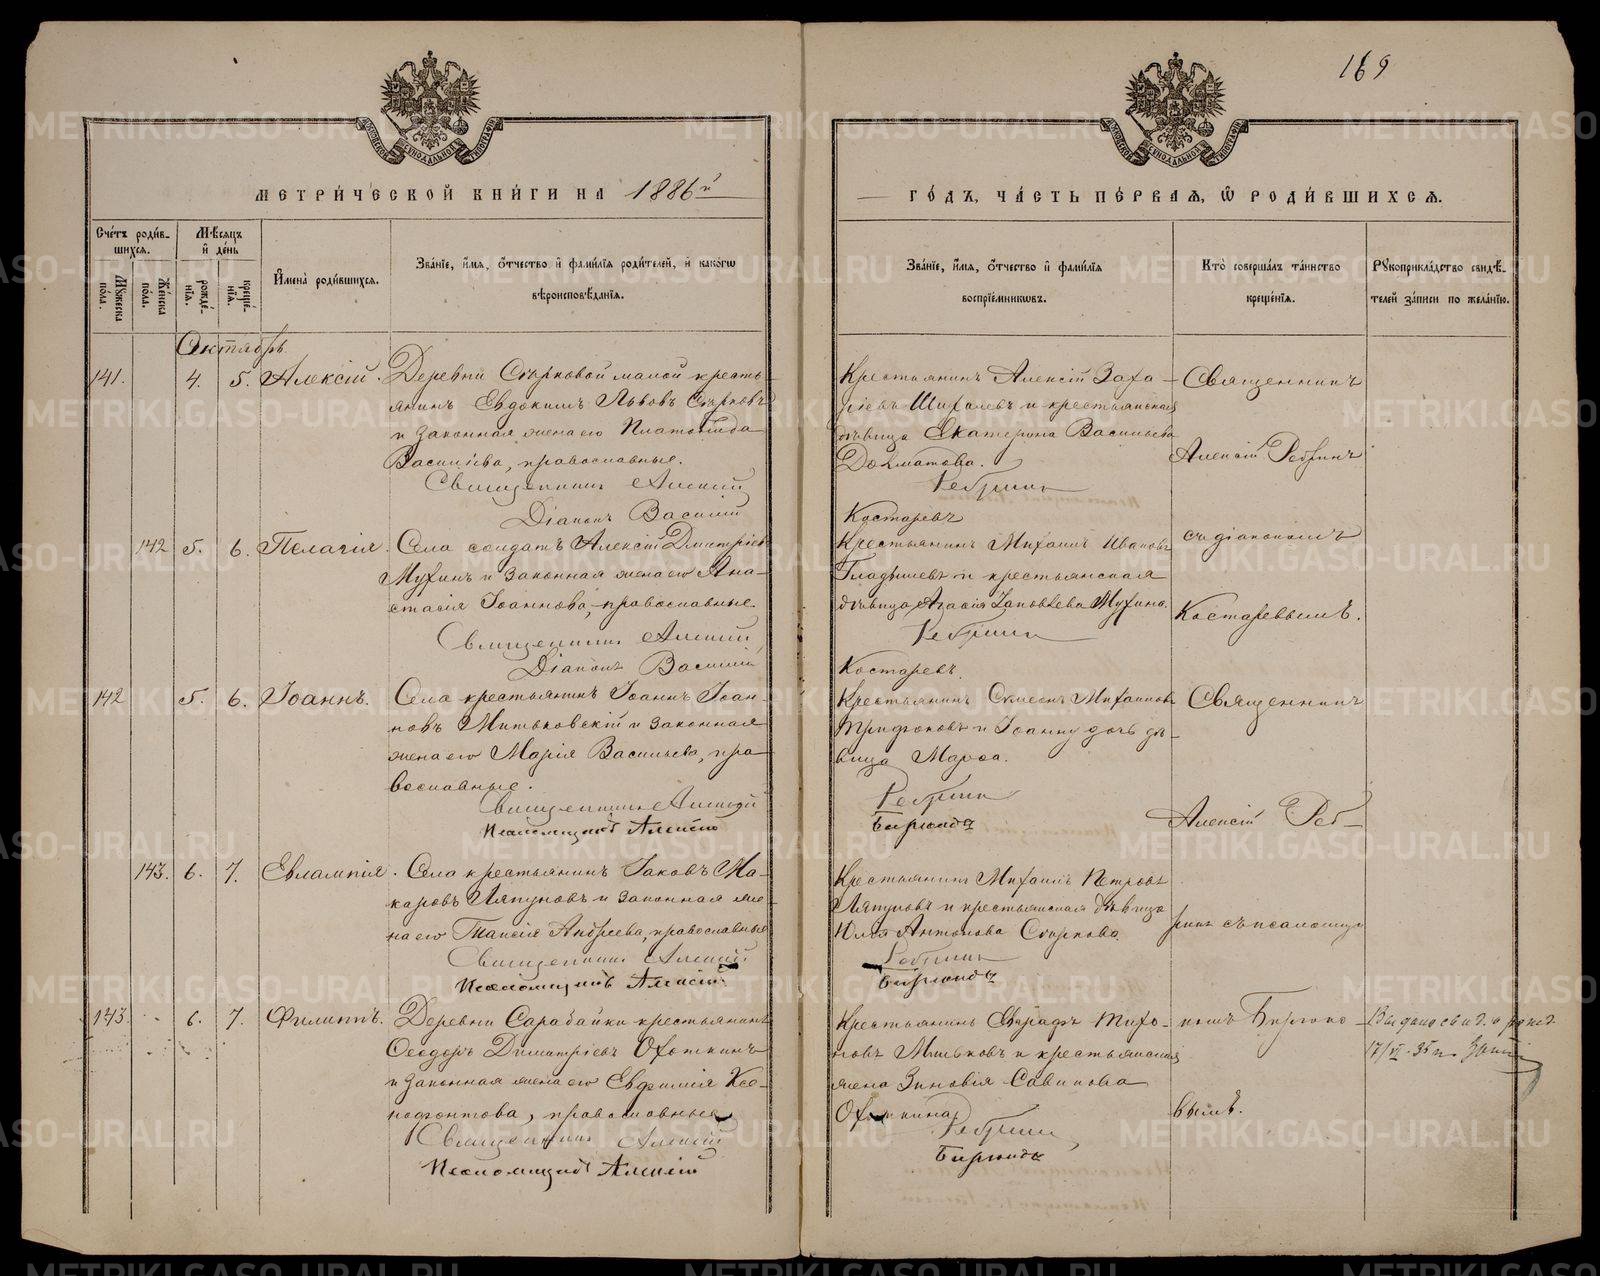 169
МЕТРИ́ЧЕСКОЙ КНИ́ГИ НА 1886й
ГО́ДЪ, ЧА́СТЬ ПЕ́РВАѦ, Ѿ РОДИ́ВШИХСѦ.
Сче́тъ роди́в-
шихсѧ.
Мꙋжеска по́ла.
Же́нска по́ла.
Мѣ́сѧцъ и де́нь
рожде́-
нїѧ.
креще́-
нїѧ.
Имена̀ роди́вшихсѧ.
Зва́нїе, и́мѧ, о́тчество и фами́лїѧ роди́телей, и како́гѡ
вѣроисповѣ́данїѧ.
Зва́нїе, и́мѧ, о́тчество и фами́лїѧ
воспрїе́мникѡвъ.
Кто̀ соверша́лъ та́инство
креще́нїѧ.
Рꙋкоприкла́дство свидѣ́-
телей за́писи по жела́нїю.
Октябрь
141. 4. 5. Алексій.
Деревни Скорковой малой кресть-
янинъ Евдокимъ Львовъ
и законная жена его
Васильева, православные.
Священникъ Алексій
Діаконъ Василій
Крестьянинъ Алексій Заха-
ріевъ Шихалевъ и крестьянская
дѣвица Екатерина Васильева
Долматова.
Ребринъ
Костаревъ
Священникъ
Алексій Ребринъ
142 5. 6. Пелагія.
Села солдатъ Алексій Дмитріевъ
Мухинъ и законная жена его Ана-
стасія Іоаннова, православные.
Священникъ Алексій
Діаконъ Василій
Крестьянинъ Михаилъ Ивановъ
Гладышевъ и крестьянская
дѣвица Мухина.
Ребринъ
Костаревъ.
съ діакономъ
Костаревымъ.
142 5. 6. Іоаннъ.
Села крестьянинъ Іоаннъ Іоан-
новъ Митьковскій и законная
жена его Марія Васильева, пра-
вославные.
Священникъ Алексій
Псаломщикъ Алексій
Крестьянинъ Симеонъ Михаиловъ
Трифоновъ и Іоанну дочь дѣ-
вица Марѳа.
Ребринъ
Бирюковъ
Священникъ
Алексій Реб-
143. 6. 7. Евлампія.
Села крестьянинъ Іаковъ Ма-
каровъ Ляпуновъ и законная же-
на его Таисія Андреева, православные
Священникъ Алексій
Псаломщикъ Алексій
Крестьянинъ Михаилъ Петровъ
Ляпуновъ и крестьянская дѣвица
Юлія Антонова Скоркова
Ребринъ
Бирюковъ
ринъ съ псаломщи-
143. 6. 7. Филиппъ.
Деревни Сарабайки крестьянинъ
Ѳеодоръ Димитріевъ Охоткинъ
и законная жена его Евфимія Ксе-
нофонтова, православные
Священникъ Алексій
Псаломщикъ Алексій
Крестьянинъ Тихо-
новъ Мильковъ и крестьянская
жена Зиновія Савинова
Охоткина.
Ребринъ
Бирюковъ
комъ Бирюко-
вымъ.
Выдано свид. о рожд.
17/VI-35 г.